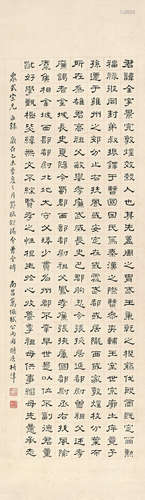 君諱全字景完敦煌效穀人也其先蓋周之胄武王秉乾之機翦伐殷商既定爾勳
福祿攸同封弟叔振鐸于曹國因氏焉秦漢之際曹參夾輔王室世宗廓土斥竟子
孫遷于雍州之郊分止右扶風或在安定或處武都或居隴西或家敦煌枝分葉布
所在為雄君高祖父敏舉孝廉武威長史巴郡朐忍令張掖居延都尉曾祖父述孝
廉謁者金城長史夏陽令蜀郡西部都尉祖父鳳孝廉張掖屬國都尉丞右扶風隃
麋侯相金城西部都尉北地太守父琫少貫名州郡不幸早世是以位不副德君童
齔好學甄極毖緯無文不綜賢孝之性根生於心收養季祖母供事繼母先意承志
歲在乙未季夏之月節臨郃陽令曹全碑 南昌萬 公雨時居析津